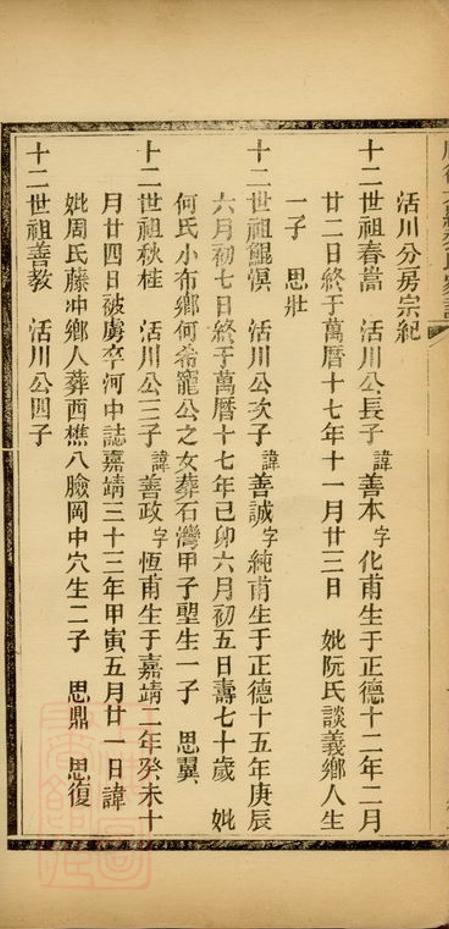 活川分房宗紀
十二世祖春嵓 活川公長子諱善本字化甫生于正德十二年二月
廿二日終于萬曆十七年十一月廿三日 妣阮氏談義鄉人生
一子 思壯
十二世祖鯤溟 活川公次子諱善誠字純甫生于正德十五年庚辰
六月初七日終于萬曆十七年己卯六月初五日壽七十歲 妣
何氏小布鄉何希寵公之女葬石灣甲子壆生一子 思翼
十二世祖秋桂 活川公三子諱善政字恆甫生于嘉靖二年癸未十
月廿四日被虜卒河中誌嘉靖三十三年甲寅五月廿一日諱
妣周氏藤冲鄉人葬西樵八臉岡中穴生二子 思鼎 思復
十二世祖善教 活川公四子